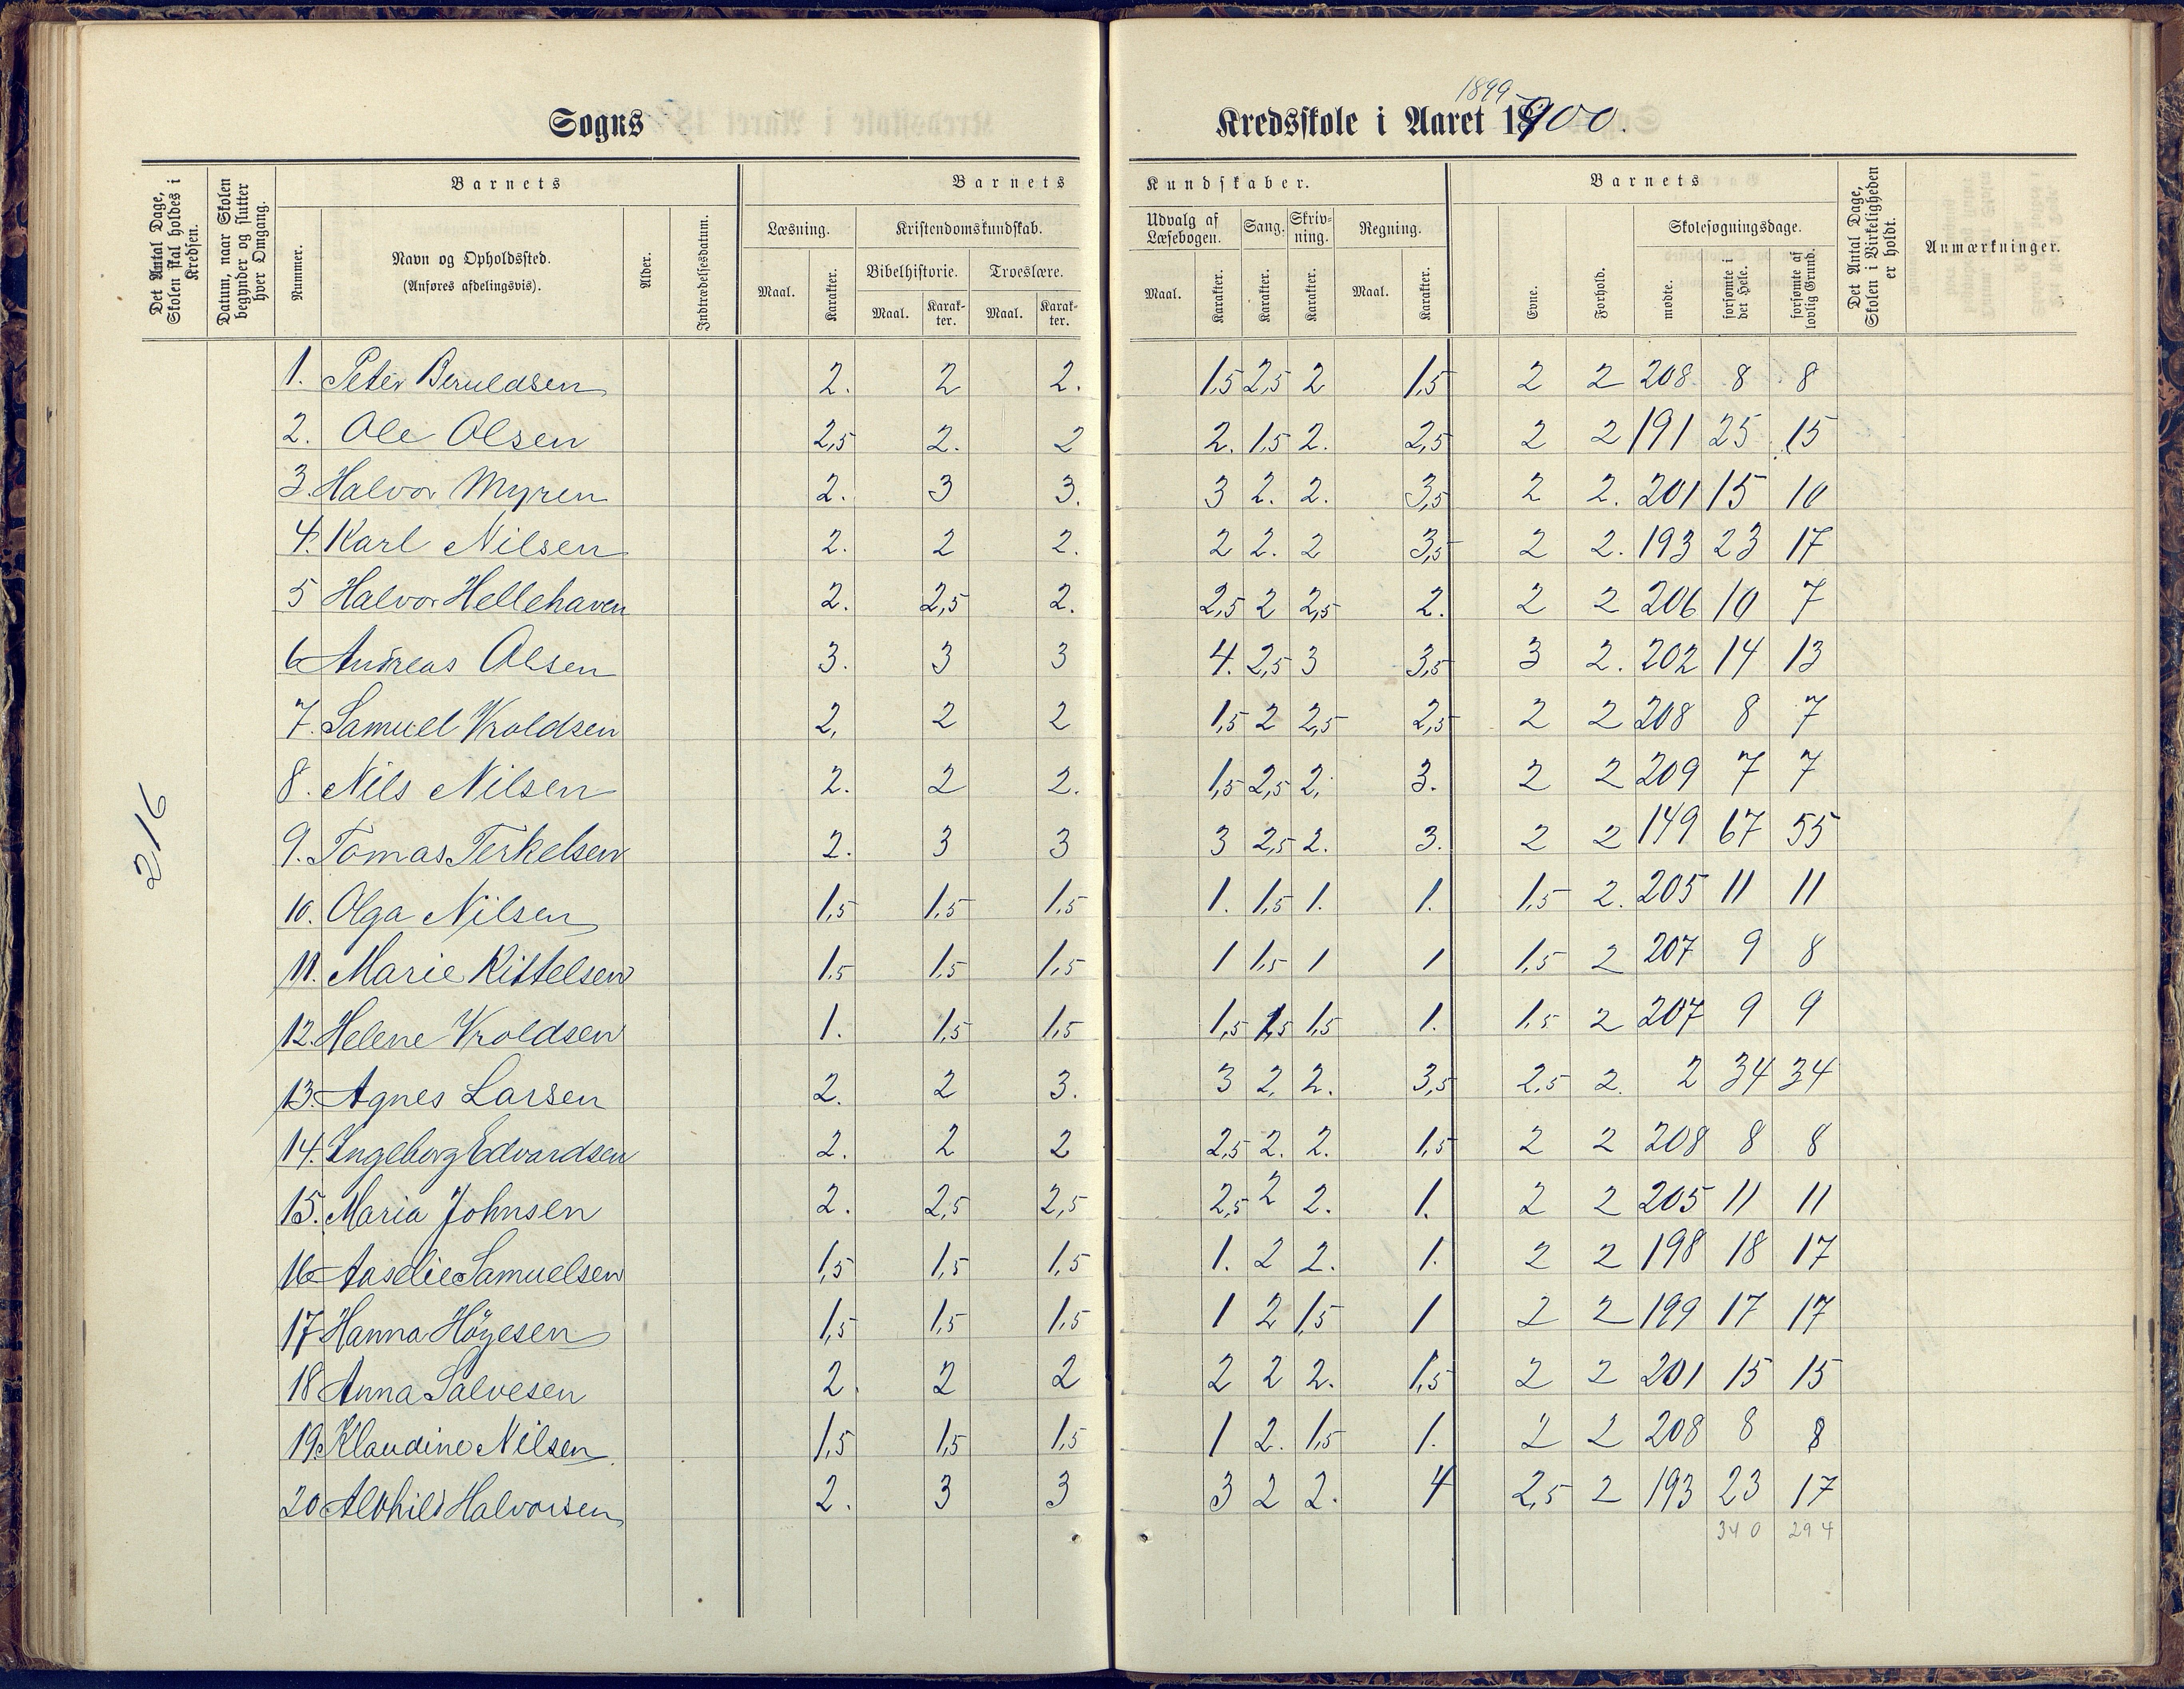 Sogns
1899-
Kredsskole i Aaret 1900.
Det Antal Dage, Skolen skal holdes i Kredsen.
Datum, naar Skolen begynder og slutter hver Omgang.
Barnets
Nummer.
Navn og Opholdssted.
(Anføres afdelingsvis).
Alder.
Indtrædelsesdatum.
Barnets
Læsning.
Maal.
Karakter.
Kristendomskundskab.
Bibelhistorie.
Maal.
Karak-
ter.
Troeslære.
Maal.
Karak-
ter.
Kundskaber.
Udvalg af
Læsebogen.
Maal.
Karakter.
Sang.
Karakter.
Skriv-
ning.
Karakter.
Regning.
Maal.
Karakter.
Barnets
Evne.
Forhold.
Skolesøgningsdage.
mødte.
forsømte i
det Hele.
forsømte af
lovlig Grund.
Det Antal Dage, Skolen i Virkeligheden er holdt.
Anmærkninger.
216
1. Peter Beruldsen 2. 2 2. 1,5 2,5 2 1,5 2 2 208 8 8
2. Ole Olsen 2,5 2. 2 2. 1,5 2. 2,5 2 2 191 25 15
3. Halvor Myren 2. 3 3. 3 2. 2. 3,5 2 2. 201 15 10
4. Karl Nilsen 2. 2 2. 2 2. 2 3,5 2 2. 193 23 17
5 Halvor Hellehaven 2. 2,5 2. 2,5 2 2,5 2. 2 2 206 10 7
6 Andreas Olsen 3. 3 3 4. 2,5 3 3,5 3 2. 202 14 13
7. Samuel Vroldsen 2, 2 2 1,5 2 2,5 2,5 2 2 208 8 7
8. Nils Nilsen 2. 2 2. 1,5 2,5 2. 3. 2 2 209 7 7
9. Tomas Terkelsen 2. 3 3 3 2,5 2. 3. 2 2 149 67 55
10. Olga Nilsen 1,5 1,5 1,5 1. 1,5 1. 1. 1,5 2. 205 11 11
11. Marie Kittelsen 1,5 1,5 1,5 1 1,5 1 1 1,5 2 207 9 8
12. Helene Vroldsen 1. 1,5 1,5 1,5 1,5 1,5 1. 1,5 2 207 9 9
13. Agnes Larsen 2. 2 3. 3 2. 2. 3,5 2,5 2. 2 34 34
14. Ingeborg Edvardsen 2. 2 2 2,5 2. 2. 1,5 2 2 208 8 8
15. Maria Johnsen 2. 2,5 2,5 2,5 2 2. 1. 2 2 205 11 11
16 Aaselie Samuelsen 1,5 1,5 1,5 1. 2 2. 1. 2 2 198 18 17
17 Hanna Höyesen 1,5 1,5 1,5 1 2 1,5 1 2 2 199 17 17
18 Anna Salvesen 2. 2 2 2 2 2. 1,5 2 2 201 15 15
19. Klaudine Nilsen 1,5 1,5 1,5 1 2. 1,5 1. 2 2 208 8 8
20 Alvhild Halvorsen 2. 3 3 3 2 2. 4 2,5 2 193 23 17
340 294